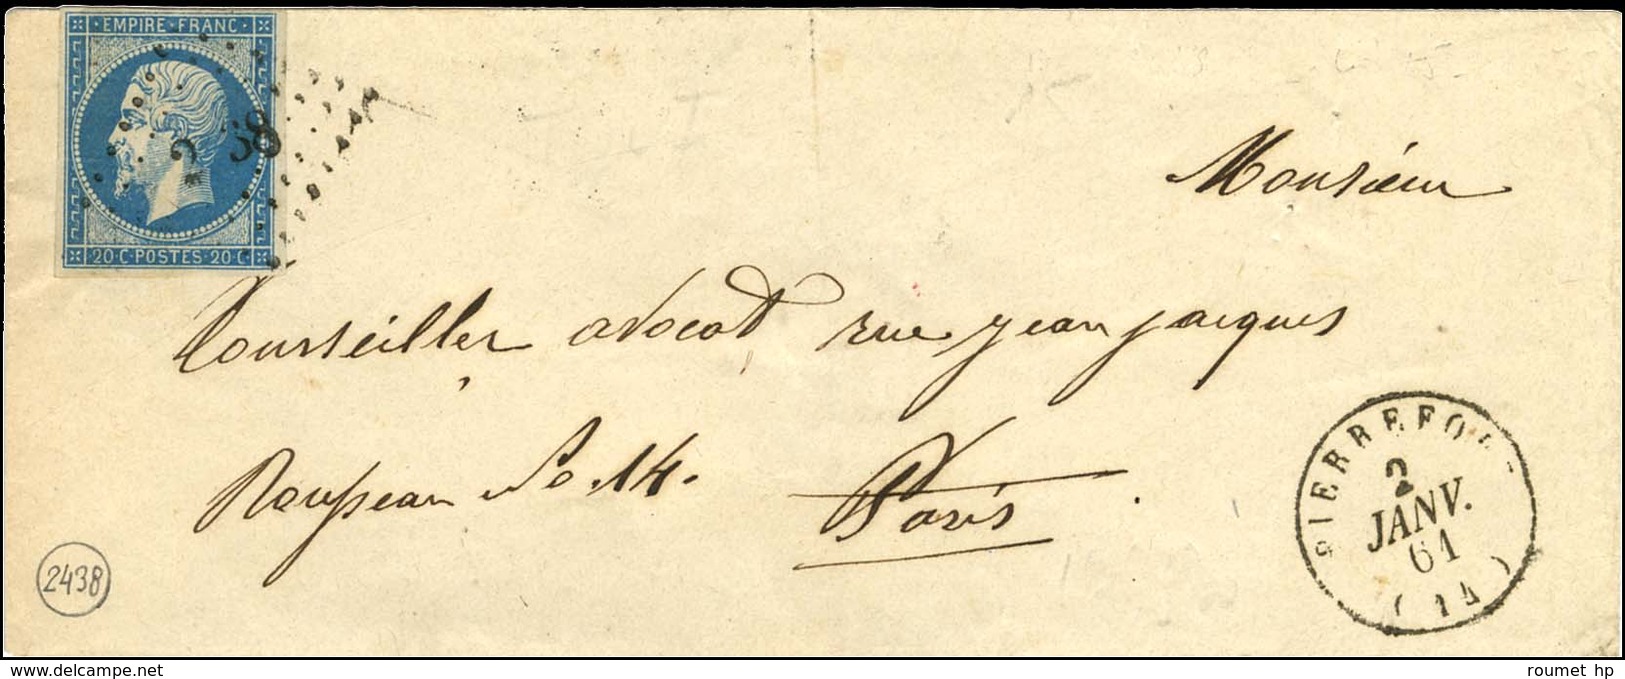 EMPIRE FRANC
2 38
20·C·POSTES·20·C
Monsieur
Conseiller avocat rue jean jacques
Rousseau No 14.
Paris
PIERREFO
2
JANV.
61
(14)
2438
www.delcampe.net
roumet hp